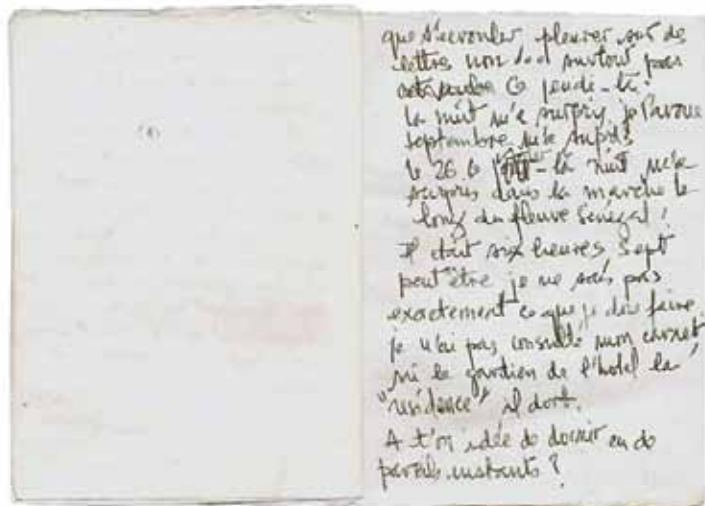 que s'écrouler pleurer sur des
lettres non surtout pas
ce jeudi-là.
la nuit m'a surpris je l'avoue
septembre m'a surpris
le 26 - la nuit m'a
surpris dans la marche le
long du fleuve Sénégal !
Il était six heures sept
peut être je ne sais pas
exactement ce que je dois faire
je n'ai pas consulté mon carnet
ni le gardien de l'hotel la
"résidence" il dort.
A t'on idée de dormir en de
pareils instants ?